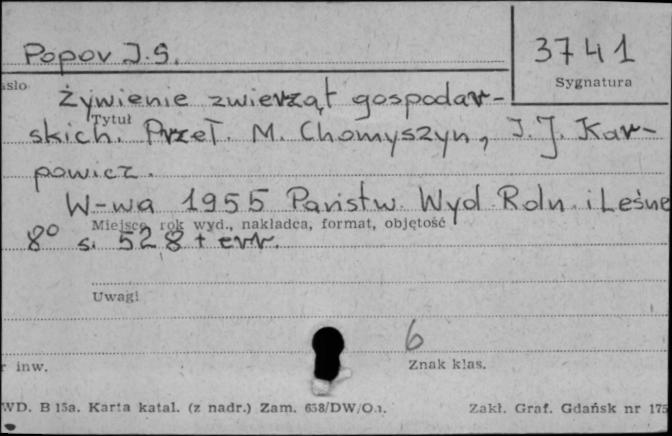 Popov J.S.
3741
Sygnatura
Żywienie zwierząt gospodar-
Tytuł
skich. Przeł. M. Chomyszyn, J.J. Kar-
powicz.
W-wa 1955 Państw. Wyd. Roln. i Leśne
Miejsce, rok wyd., nakładca, format, objętość
8° s. 528 + err.
Uwagi
6
r inw.
Znak klas.
WD. B 15a. Karta katal. (z nadr.) Zam. 658/DW/O.
Zakł. Graf. Gdańsk nr 175